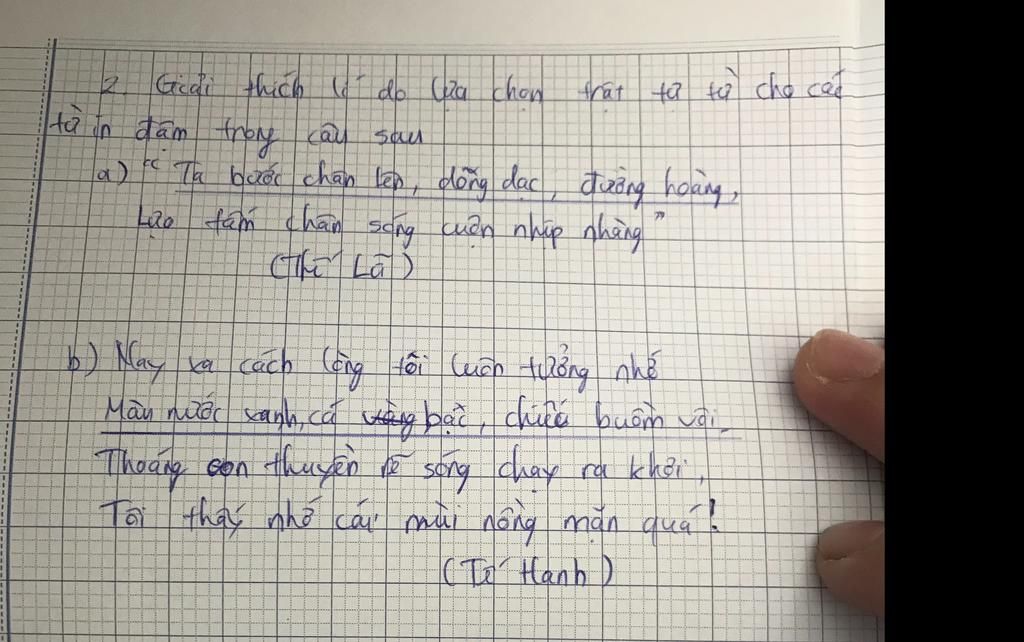 2. Giải thích lí do lựa chọn trật tự từ cho các
từ in đậm trong câu sau
a) "Ta bước chân lên, dõng dạc, đường hoàng,
Lượn tấm thân sóng cuộn nhịp nhàng"
(Thế Lữ)
b) Nay xa cách lòng tôi luôn tưởng nhớ
Màu nước xanh, cá bạc, chiếc buồm vôi
Thoáng con thuyền rẽ sóng chạy ra khơi,
Tôi thấy nhớ cái mùi nồng mặn quá!
(Tế Hanh)